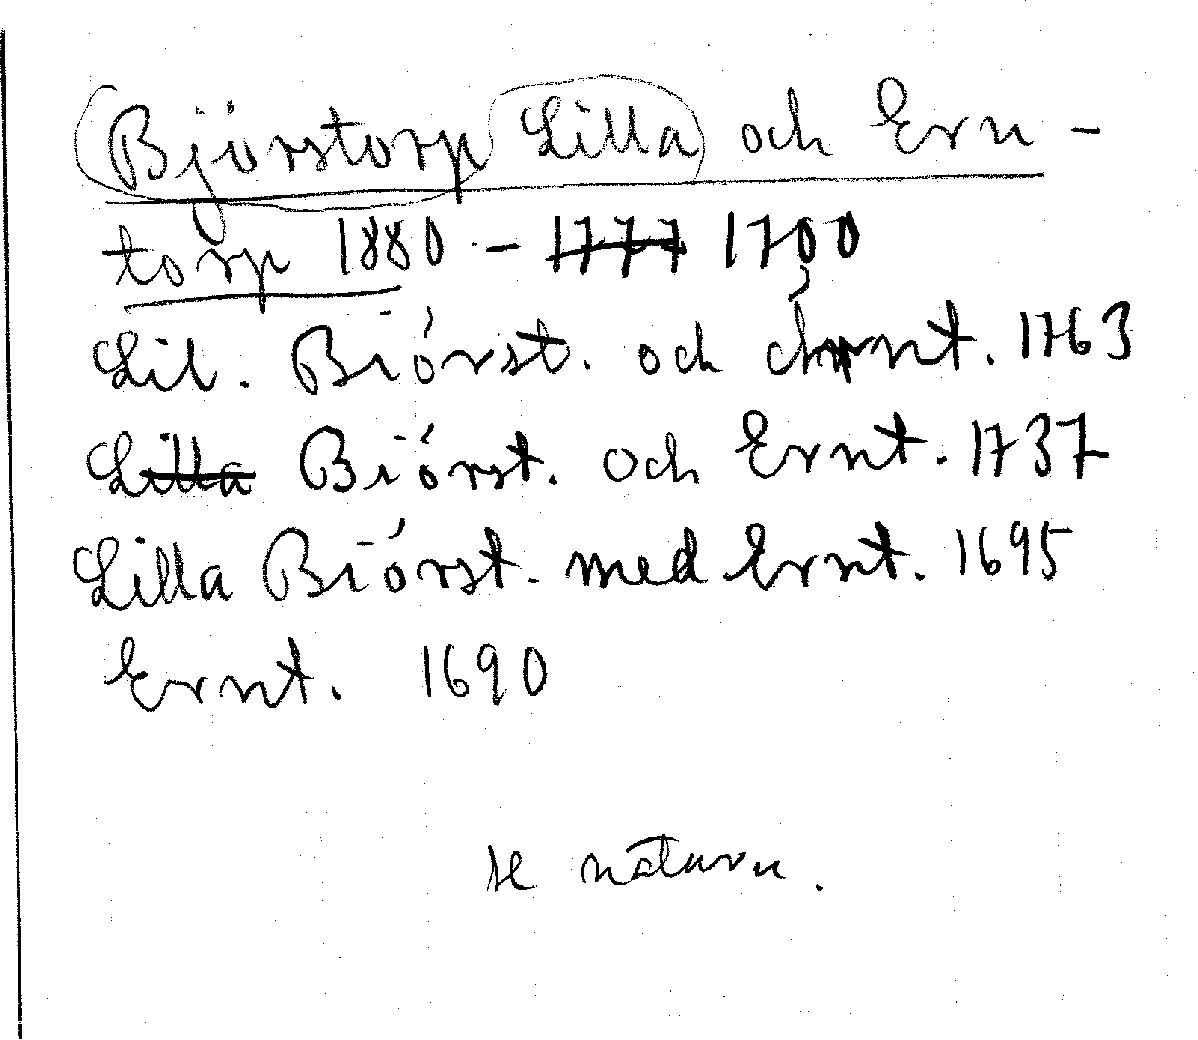 Björstorp Lilla och Ern-
torp 1880 - 1777 1700
Lil. Biörst. och Ernt. 1763
Lilla Biörst. och Ernt. 1737
Lilla Biörst. med Ernt. 1695
Ernt. 1690
se naturn.